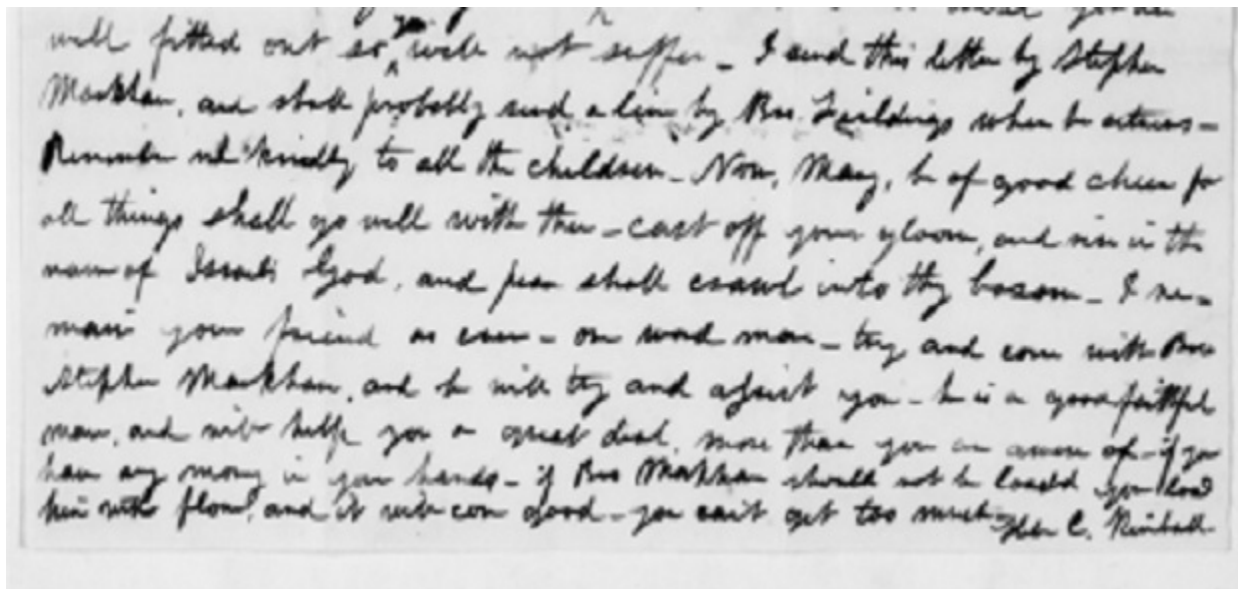 well fitted out so you will not suffer – I send this letter by Stephen
Markham, and shall probably send a line by Bro. Fieldings when he returns –
Remember me kindly to all the children – Now, Mary, be of good cheer for
all things shall go well with thee – cast off your gloom, and rise in the
name of Israels God, and peace shall crawl into thy bosom – I re-
main your friend as ever – one word more – try and come with Bro
Stephen Markham, and he will try and assist you – he is a good faithful
man, and will help you a great deal, more than you are aware of – if you
have any money in your hands – if Bro Markham should not be loaded you load
him with flour, and it will come good – you can't get too much – Heber C. Kimball